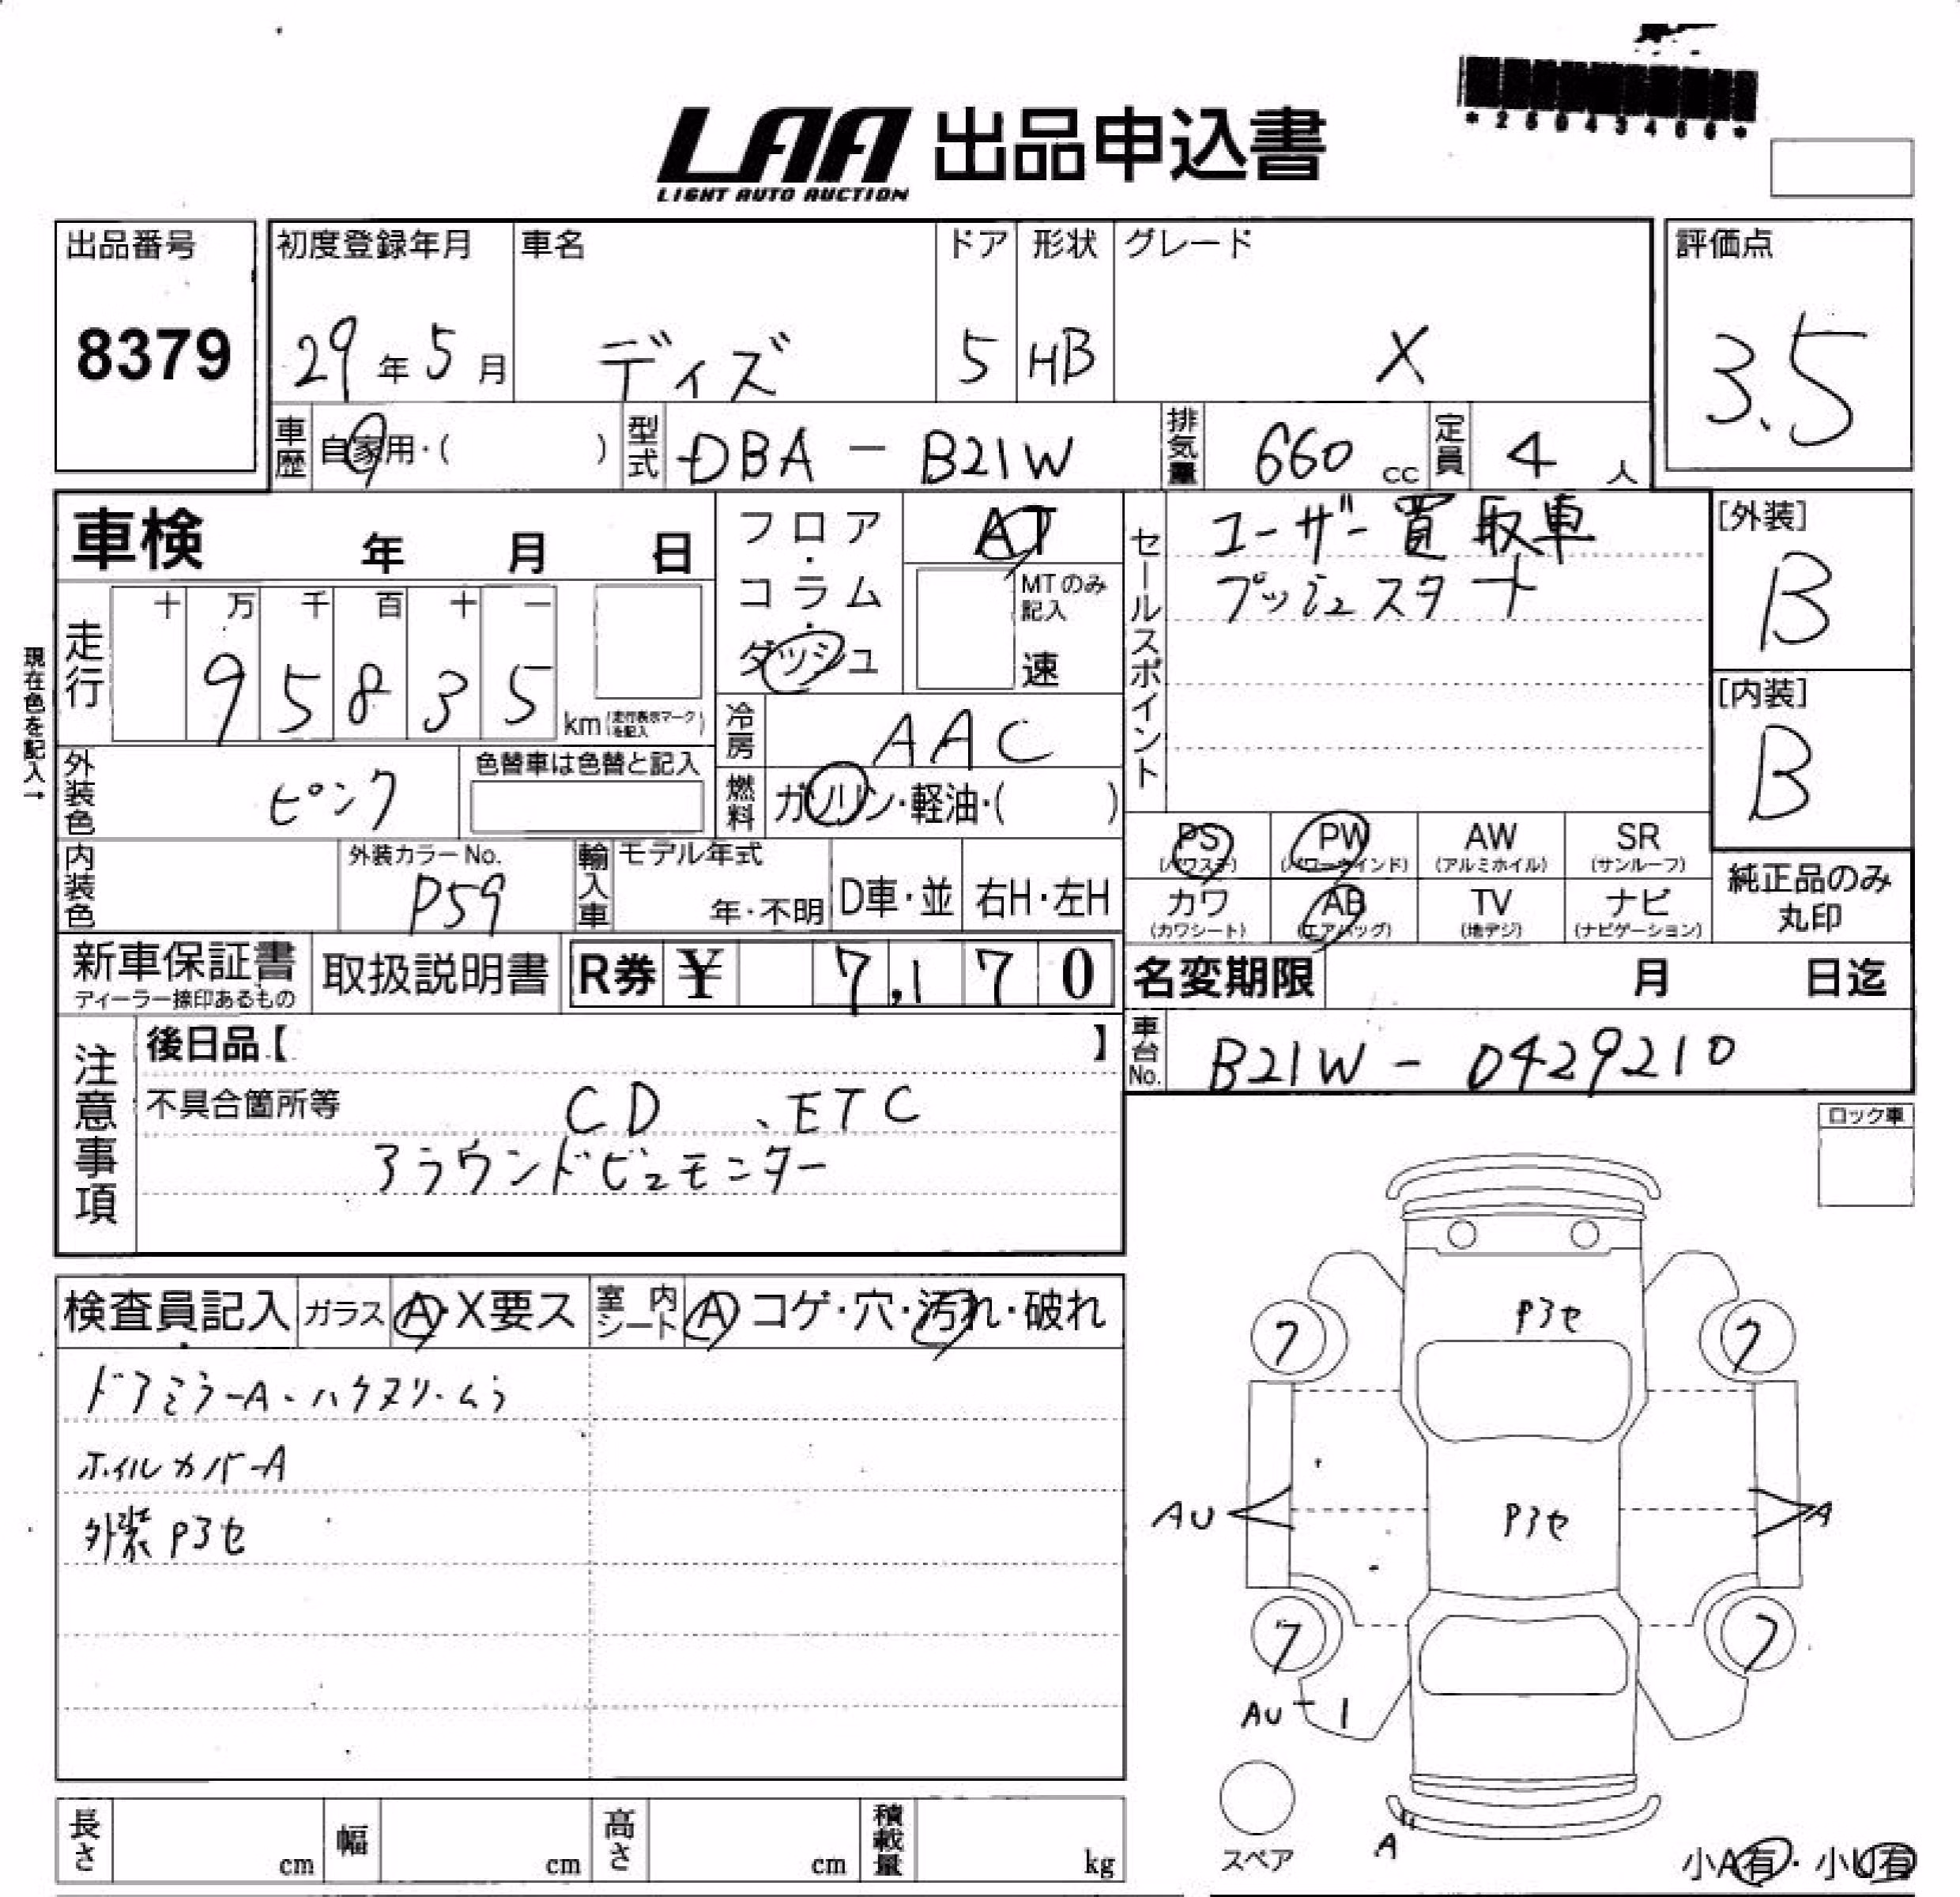 LAA 出品申込書
LIGHT AUTO AUCTION
出品番号
8379
初度登録年月
29年5月
車名
デイズ
ドア
5
形状
HB
グレード
X
評価点
3.5
車歴
自家用・( )
型式
DBA - B21W
排気量
660 cc
定員
4 人
車検 年 月 日
現在色を記入→
走行
十 万 千 百 十 一
9 5 8 3 5
km (走行表示マークを記入)
フロア・コラム・ダッシュ
AT
MTのみ記入
速
冷房
AAC
燃料
ガソリン・軽油・( )
外装色
ピンク
色替車は色替と記入
内装色
外装カラーNo.
P59
輸入車
モデル年式
年・不明
D車・並
右H・左H
セールスポイント
ユーザー買取車
プッシュスタート
[外装]
B
[内装]
B
PS
(パワステ)
PW
(パワーウインド)
AW
(アルミホイル)
SR
(サンルーフ)
カワ
(カワシート)
AB
(エアバッグ)
TV
(地デジ)
ナビ
(ナビゲーション)
純正品のみ
丸印
新車保証書
ディーラー捺印あるもの
取扱説明書
R券 ¥ 7,170
名変期限 月 日迄
車台No.
B21W - 0429210
注意事項
後日品【 】
不具合箇所等
CD 、ETC
アラウンドビュモニター
ロック車
検査員記入
ガラス
A・X要ス
室内シート
A コゲ・穴・汚れ・破れ
ドアミラーA、ハクヌリムラ
ホイルカバーA
外装Pヨセ
Pヨセ
7
7
AU
Pヨセ
A
7
7
AU
1
スペア
A
小A有・小U有
長さ cm
幅 cm
高さ cm
積載量 kg